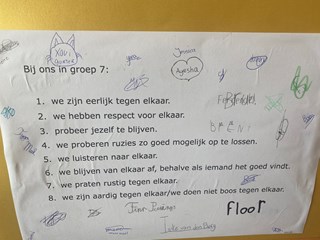 XAVI
Jason
Ayesha
Bij ons in groep 7:
1. we zijn eerlijk tegen elkaar.
2. we hebben respect voor elkaar.
3. probeer jezelf te blijven.
4. we proberen ruzies zo goed mogelijk op te lossen.
5. we luisteren naar elkaar.
6. we blijven van elkaar af, behalve als iemand het goed vindt.
7. we praten rustig tegen elkaar.
8. we zijn aardig tegen elkaar/we doen niet boos tegen elkaar.
Floor